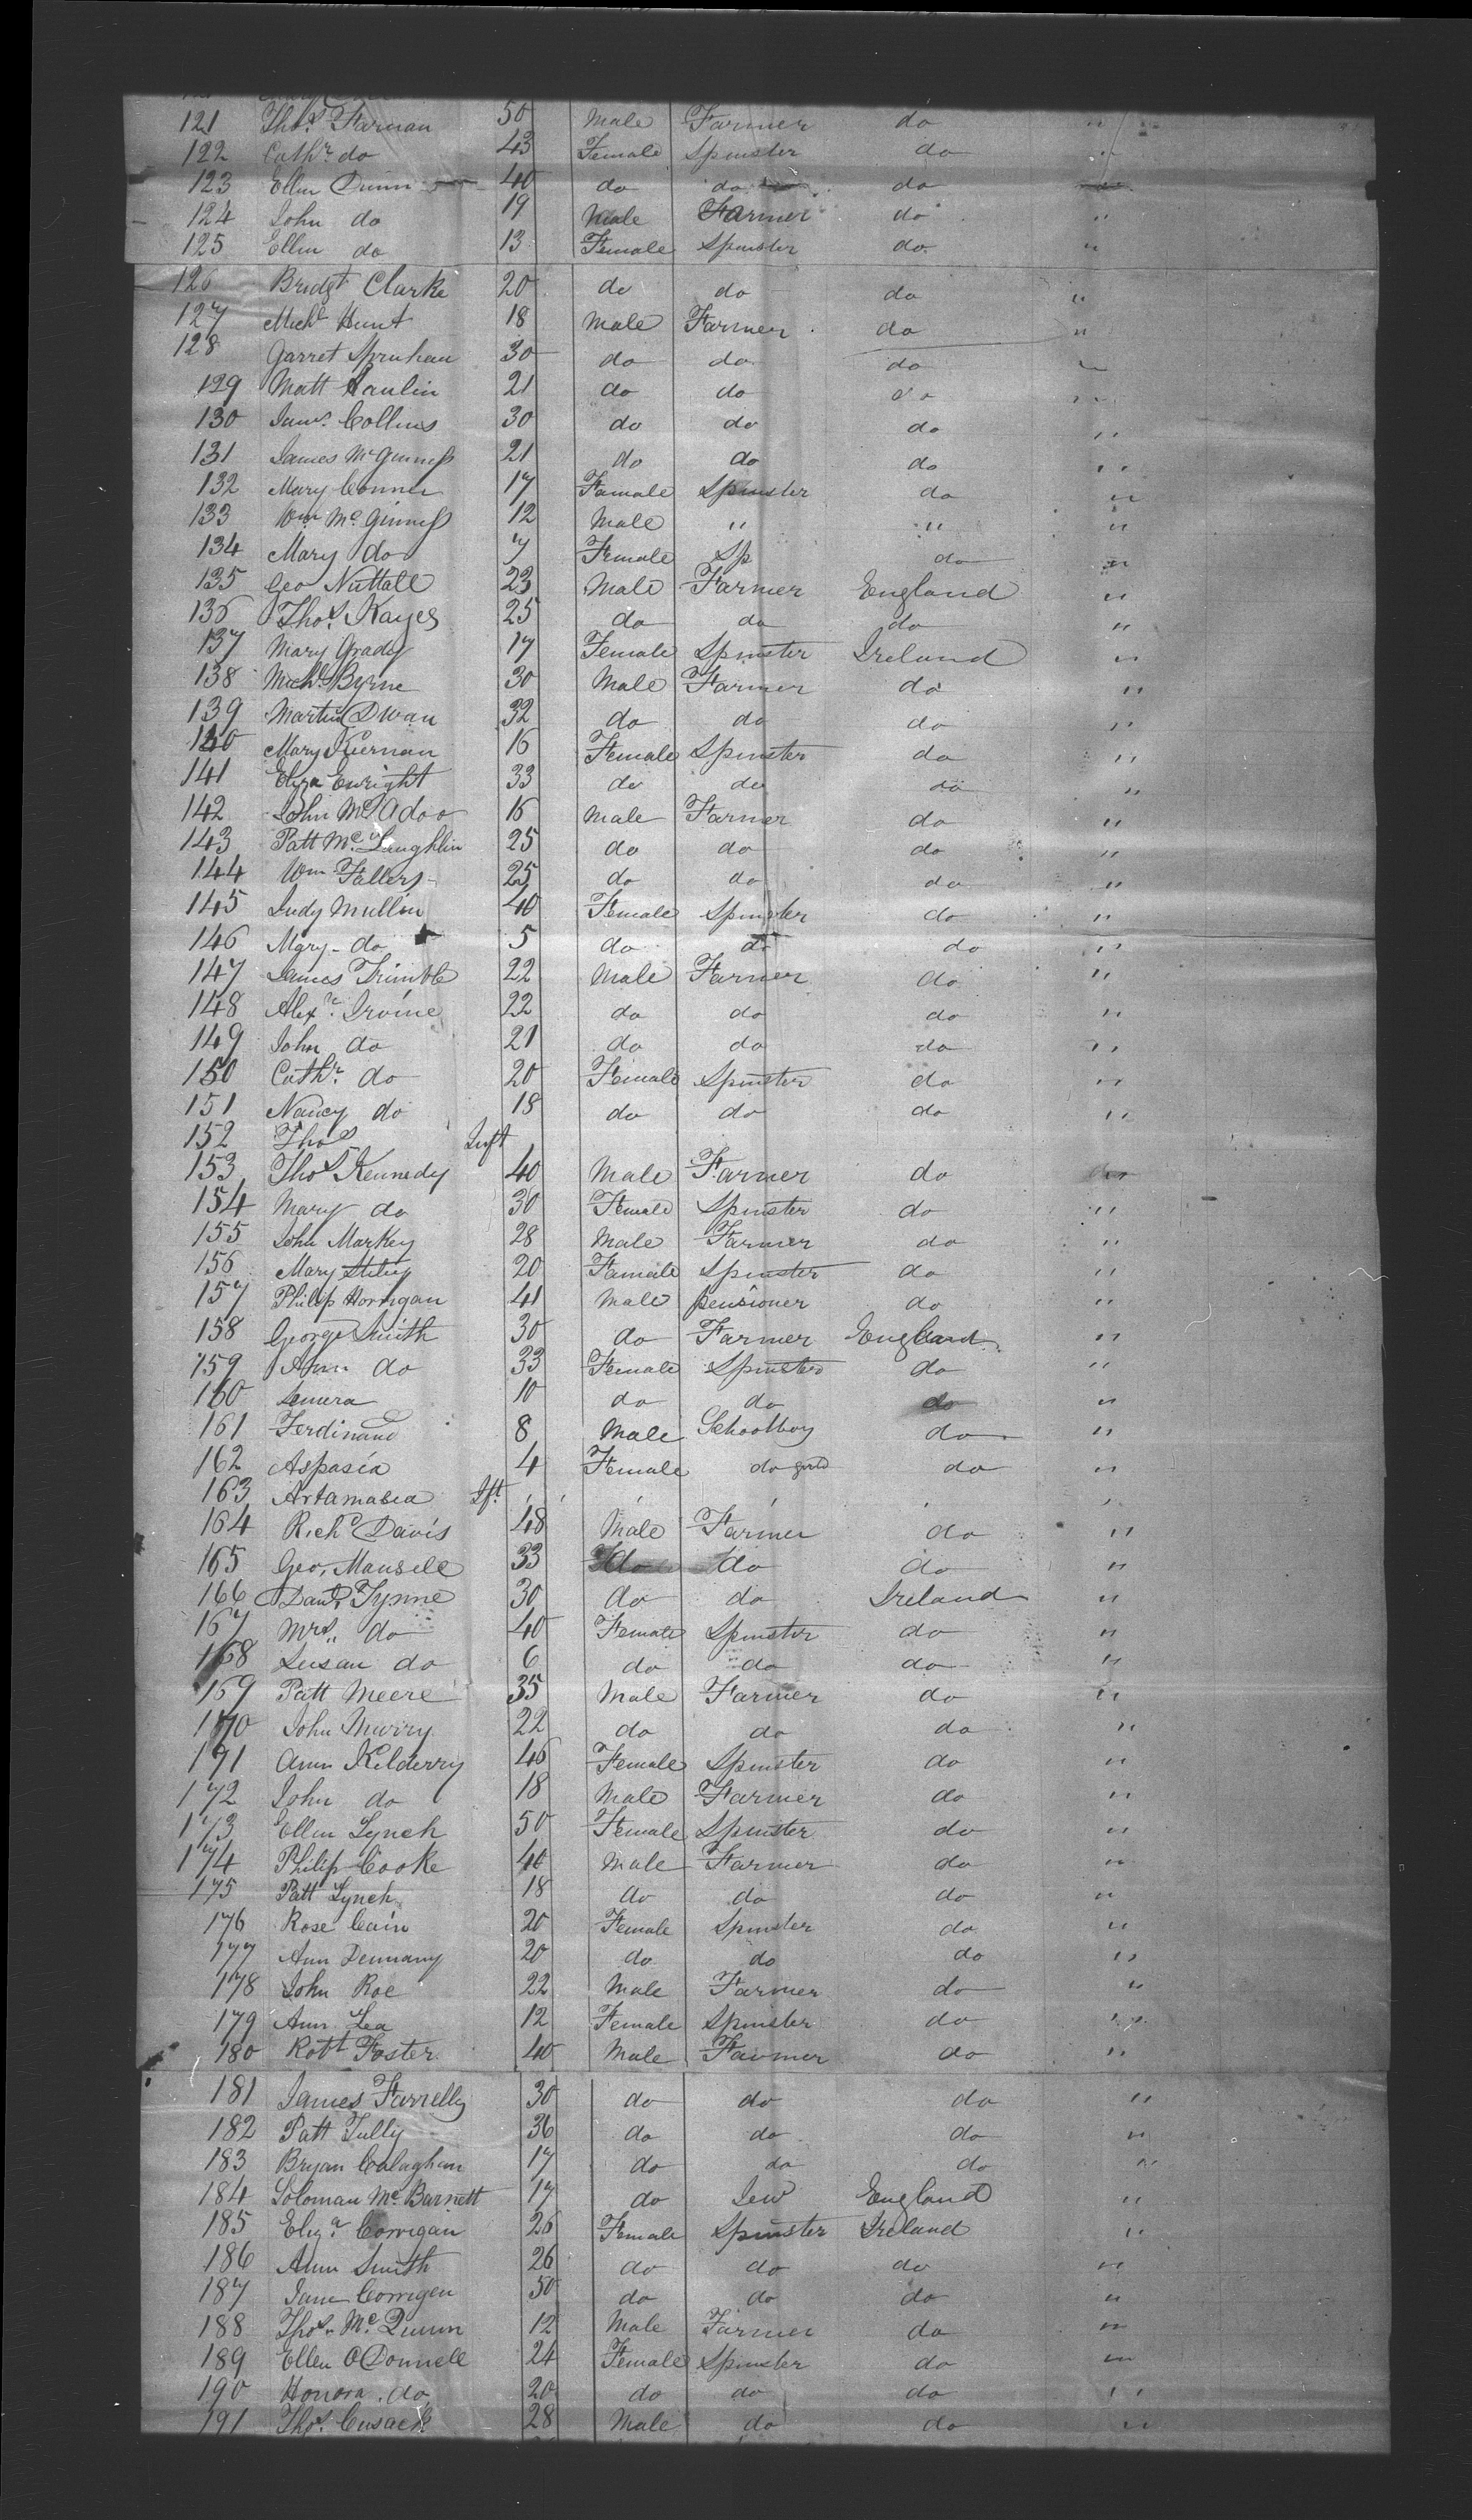 121 Thos. Farnan 50 Male Farmer do "
122 Cathr. do 43 Female Spinster do "
123 Ellen Dunn 40 do do do
124 John do 19 Male Farmer do "
125 Ellen do 13 Female Spinster do "
126 Bridgt Clarke 20 do do do "
127 Michl Hunt 18 Male Farmer do "
128 Garret Spruhan 30 do do do "
129 Matt 21 do do do "
130 Jams. Collins 30 do do do "
131 James McGinness 21 do do do "
132 Mary Conner 17 Famale Spinster do "
133 Wm Mc Ginness 12 Male " " "
134 Mary do 7 Female Sp do "
135 Geo Nuttall 23 Male Farmer England "
136 Thos. Kayes 25 do do do "
137 Mary Grady 17 Female Spinster Ireland "
138 Michl Byrne 30 Male Farmer do "
139 Martin Dwan 32 do do do "
140 Mary Kiernan 16 Female Spinster do "
141 Eliza Enright 33 do do do "
142 John McAdoo 16 Male Farmer do "
143 Patt Mc Laughlin 25 do do do "
144 Wm Fallers 25 do do do "
145 Judy Mullin 40 Female Spinster do "
146 Mary do 5 do do do "
147 James Trimble 22 Male Farmer do "
148 Alexr. Irvine 22 do do do "
149 John do 21 do do do "
150 Cathr. do 20 Female Spinster do "
151 Nancy do 18 do do do "
152 Thos Inft
153 Thos Kennedy 40 Male Farmer do do
154 Mary do 30 Female Spinster do "
155 John Markey 28 Male Farmer do "
156 Mary 20 Famale Spinster do "
157 Philip Horrigan 41 Male pensioner do "
158 George Smith 30 do Farmer England "
159 Ann do 33 Female Spinster do "
160 10 do do do "
161 Ferdinand 8 Male Schoolboy do "
162 Aspasia 4 Female do girl do "
163 Artamasia Ift. ' ' ' ' ' '
164 Richd Davis 48 Male Farmer do "
165 Geo. Mansell 33 do do do "
166 Danl. Tynne 30 do do Ireland "
167 Mrs. " do 40 Female Spinster do "
168 Susan do 6 do do do "
169 Patt Meere 35 Male Farmer do "
170 John Murry 22 do do do "
171 Ann Kilderry 46 Female Spinster do "
172 John do 18 Male Farmer do "
173 Ellen Lynch 50 Female Spinster do "
174 Philip Cooke 40 Male Farmer do "
175 Patt Lynch 18 do do do "
176 Rose Cain 20 Female Spinster do "
177 Ann Dennany 20 do do do "
178 John Roe 22 Male Farmer do "
179 Ann Lea 12 Female Spinster do "
180 Robt Foster 40 Male Farmer do "
181 James Farrelly 30 do do do "
182 Patt Tully 36 do do do "
183 Bryan Calaghan 17 do do do "
184 Soloman Mc Barnett 17 do Jew England "
185 Eliza. Corrigan 26 Female Spinster Ireland "
186 Ann Smith 26 do do do "
187 Jane Corrigen 50 do do do "
188 Thos. Mc Quinn 12 Male Farmer do "
189 Ellen O Donnell 24 Female Spinster do "
190 Honora do 20 do do do "
191 Thos. Cusack 28 Male do do "